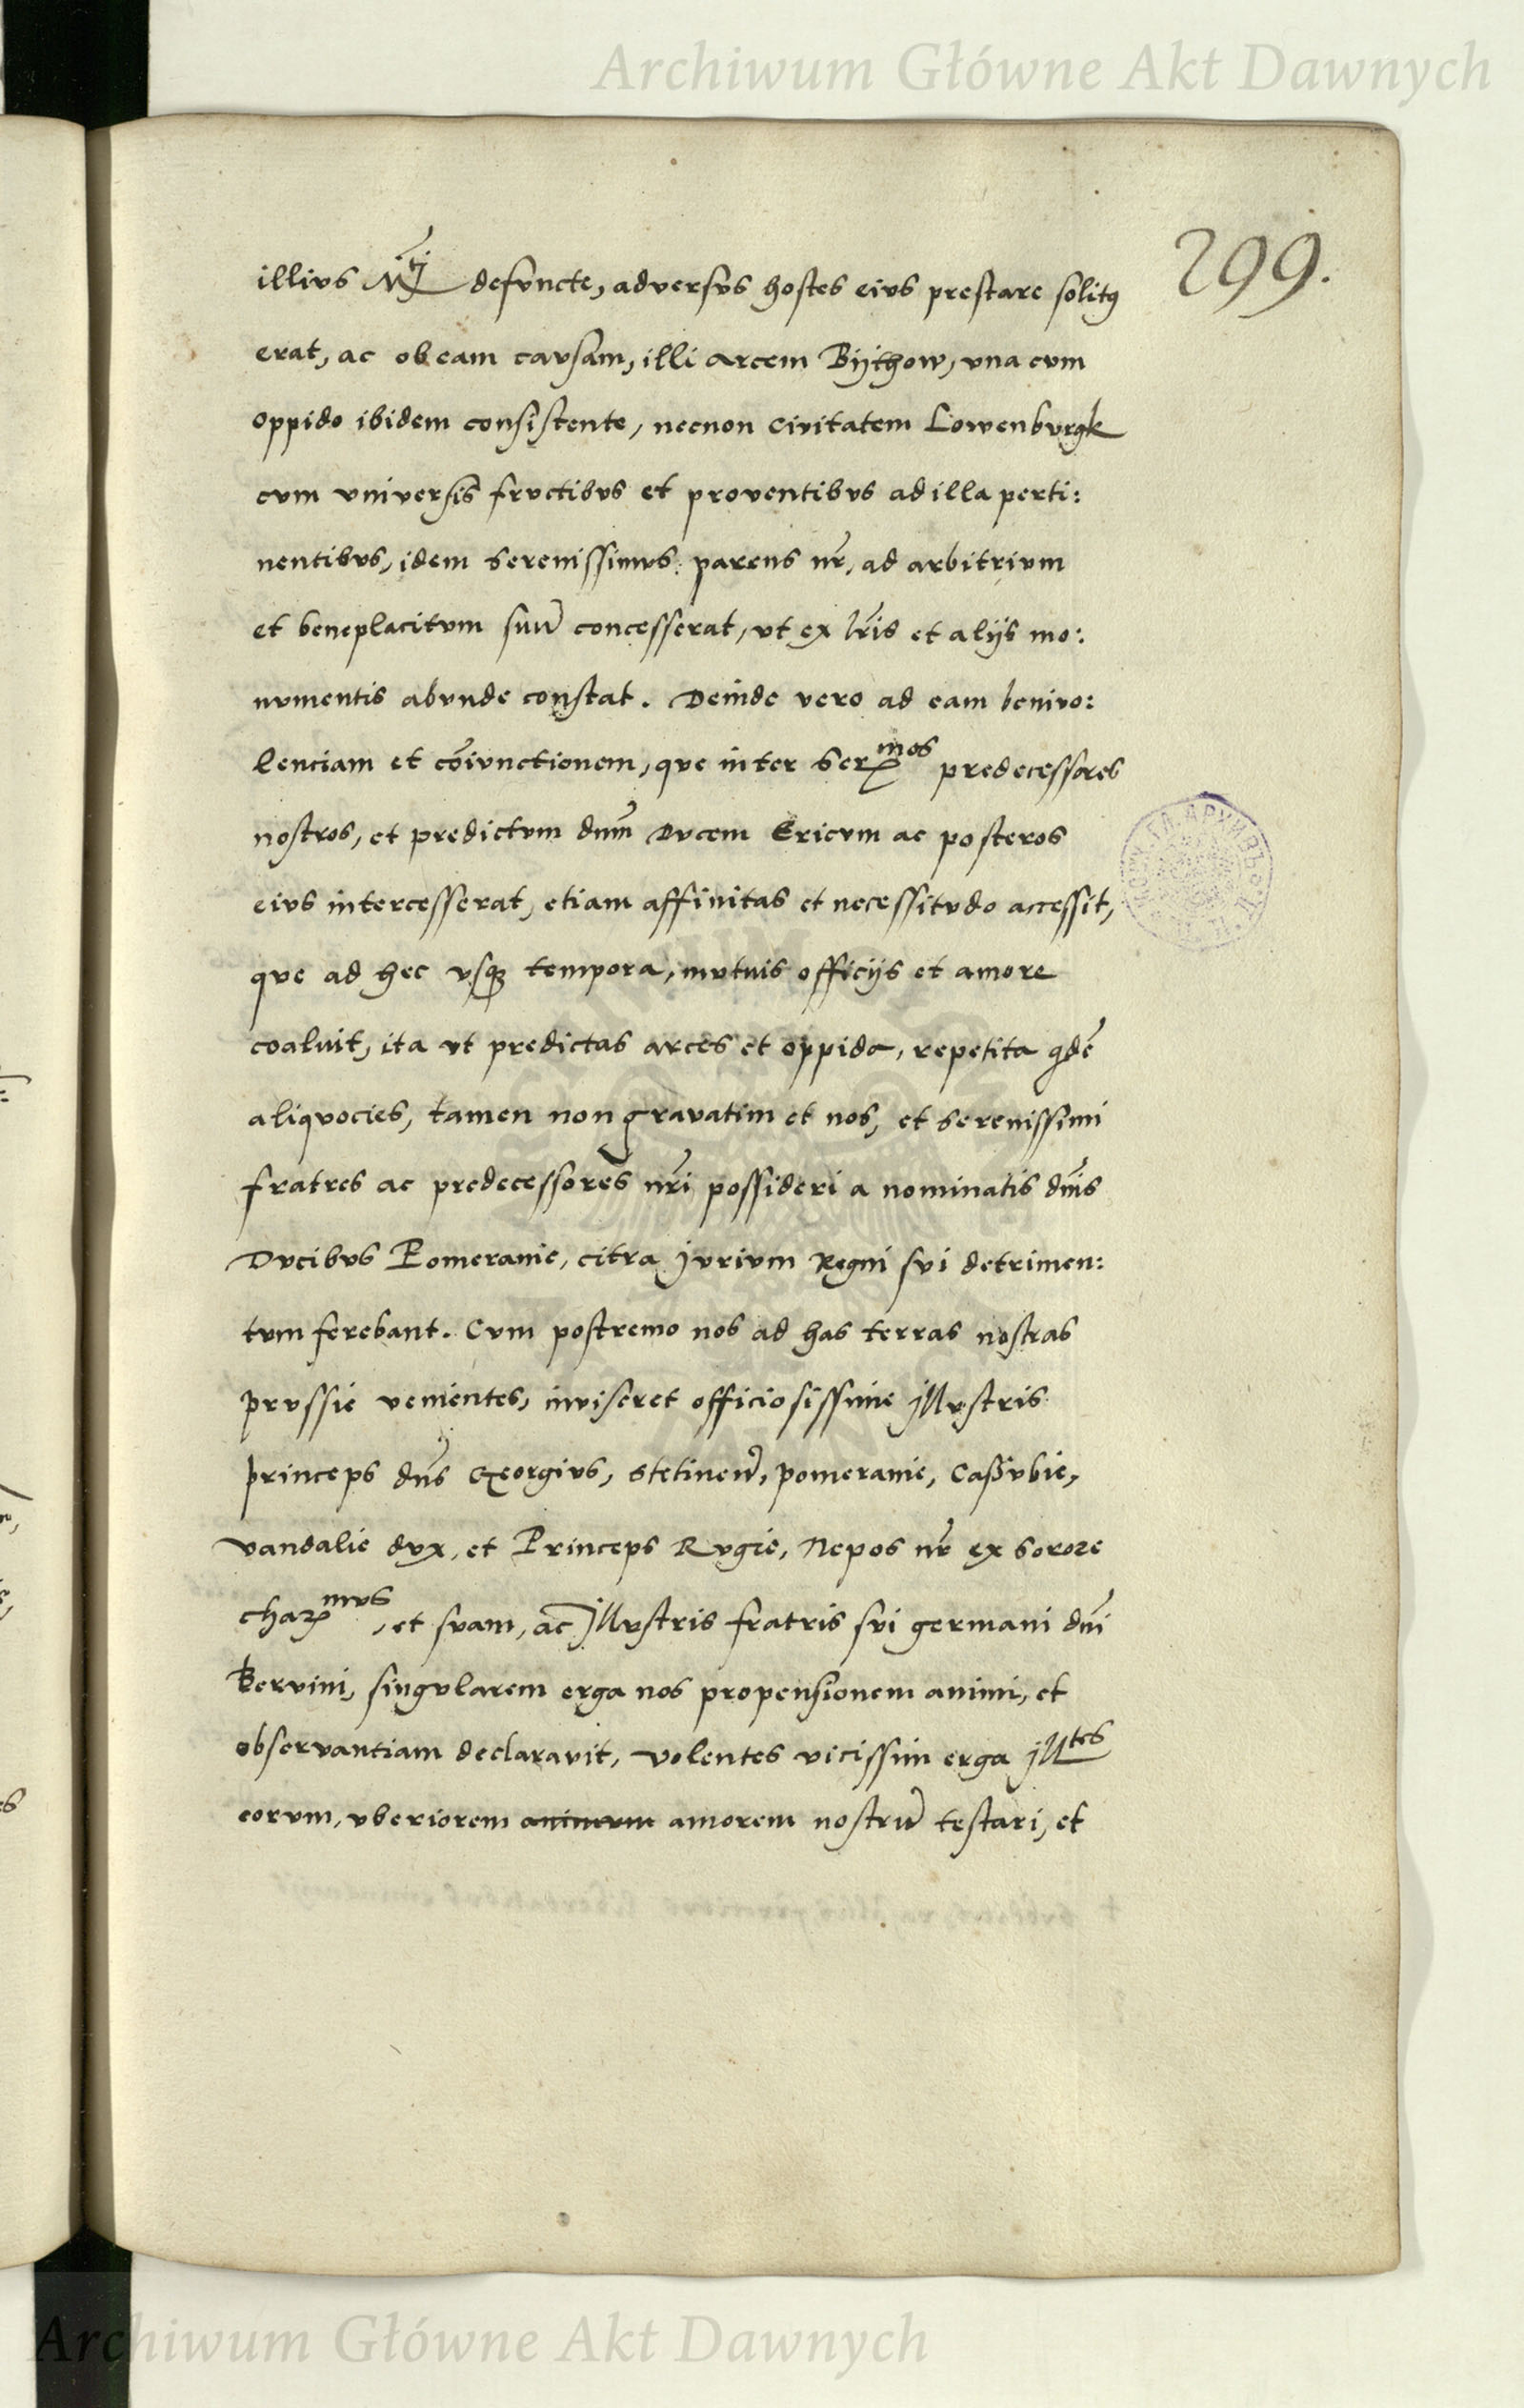 Archiwum Główne Akt Dawnych
299.
illius M̃tj defuncte, adversus hostes eius prestare solitꝰ
erat, ac ob eam causam, illi arcem Bijthow, una cum
oppido ibidem consistente, necnon Civitatem Lowenburgk
cum universis fructibus et proventibus ad illa perti:
nentibus, idem Serenissimus parens nr̃, ad arbitrium
et beneplacitum suũ concesserat, ut ex lr̃is et alijs mo:
numentis abunde constat. Deinde vero ad eam benivo:
lenciam et cõiunctionem, que inter Serᵐᵒˢ predecessores
nostros, et predictum dnm̃ Ducem Ericum ac posteros
eius intercesserat, etiam affinitas et necessitudo accessit,
que ad hec usqꝫ tempora, mutuis officijs et amore
coaluit, ita ut predictas arces et oppida, repetita qdẽ
aliquocies, tamen non gravatim et nos, et Serenissimi
fratres ac predecessores nr̃i possideri a nominatis dnĩs
Ducibus Pomeranie, citra jurium Regni sui detrimen:
tum ferebant. Cum postremo nos ad has terras nostras
prussie venientes, inviseret officiosissime jllustris
princeps dns̃ Georgius, Stetineñ, pomeranie, Cassubie,
vandalie dux, et Princeps Rugie, Nepos nr̃ ex Sorore
charᵐᵘˢ, et suam, ac jllustris fratris sui germani dnĩ
Bervini, singularem erga nos propensionem animi, et
observantiam declaravit, volentes vicissim erga jllᵗᵉˢ
eorum, uberiorem animum amorem nostrũ testari, et
Archiwum Główne Akt Dawnych